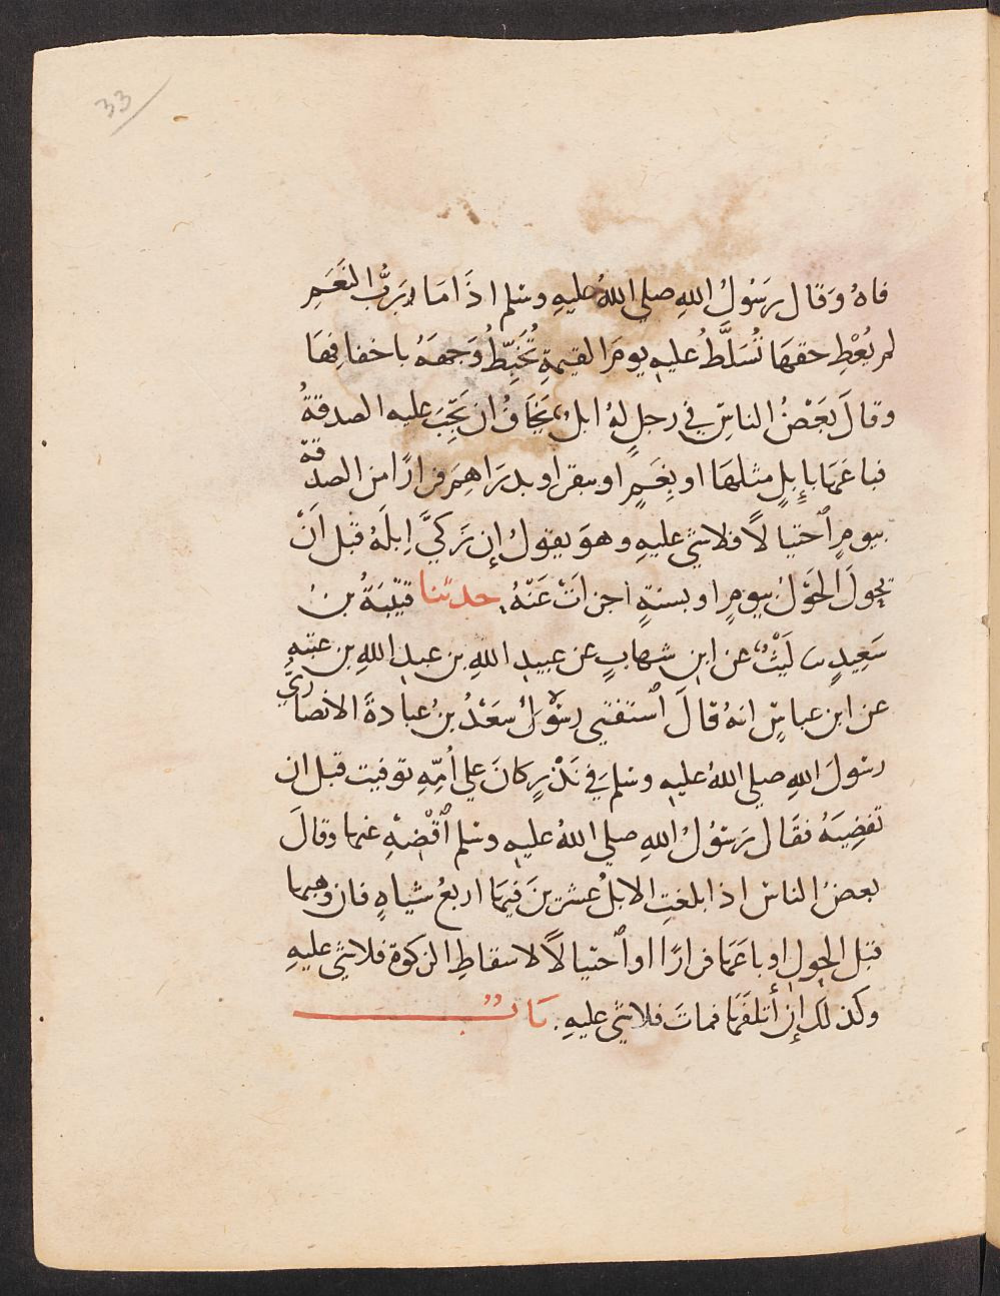 33
فاهُ وَقال رَسُولُ اللهِ صلي اللهُ عليهِ وسلم اذَا مَا رَبُّ النَّعَمِ
لم يُعْطِ حقهَا تُسَلَّطُ عليهِ يومَ القيمةِ تُخَبِّطُ وَجهَهُ باخفافِهَا
وقالَ بَعَضُ الناسِ في رجلٍ لهُ ابلٌ يَخَافُ ان تَجِّبَ عليه الصدقةُ
فباعَهَا بإِبِلٍ مثلهَا او بِغَمٍ او ببقر او بدرَاهِمَ فرارًا من الصدقة
بيومٍ ٱحتيالاً فلاشي عليهِ وهوَ يقولُ إن زَكيَّ اِبلَهُ قبل اَنْ
يحولَ الحَوْلُ بيومٍ او بسنةٍ اجزاتْ عَنْهُ. حدثنا قتَيْبَةُ بنُ
سَعِيدٍ ثنا لَيْثٌ عن ابنِ شهابٍ عن عبيدِ اللهِ بن عبدِ اللهِ بن عتبه
عن ابن عباسٍ انهُ قالَ ٱستفتي سَعْدُ بنُ عبادةَ الانصاريُّ
رسولَ اللهِ صلي اللهُ عليهِ وسلمَ في نَذْرٍ كانَ علي اُمِّهِ توفيت قبل ان
تقضِيَهُ فقَال رَسُولُ اللهِ صلي اللهُ عليهِ وسلم ٱقْضِهِ عنها وقالَ
بعضُ الناس اذا بلغتِ الابلُ عشرينَ ففِيهَا اربعُ شياهٍ فان وهبها
قبل الحولِ او باعَهَا فرارًا او ٱحتيالاً لاسقاطِ الزكوة فلاشي عليهِ
وكذلك إن أتلفَهَا فماتَ فلاشي عليهِ. بَابٌ